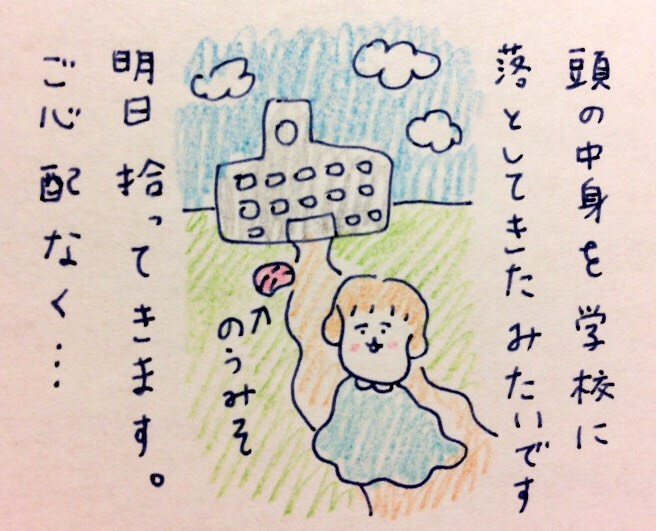 頭の中身を学校に
落としてきたみたいです
のうみそ
明日拾ってきます。
ご心配なく…